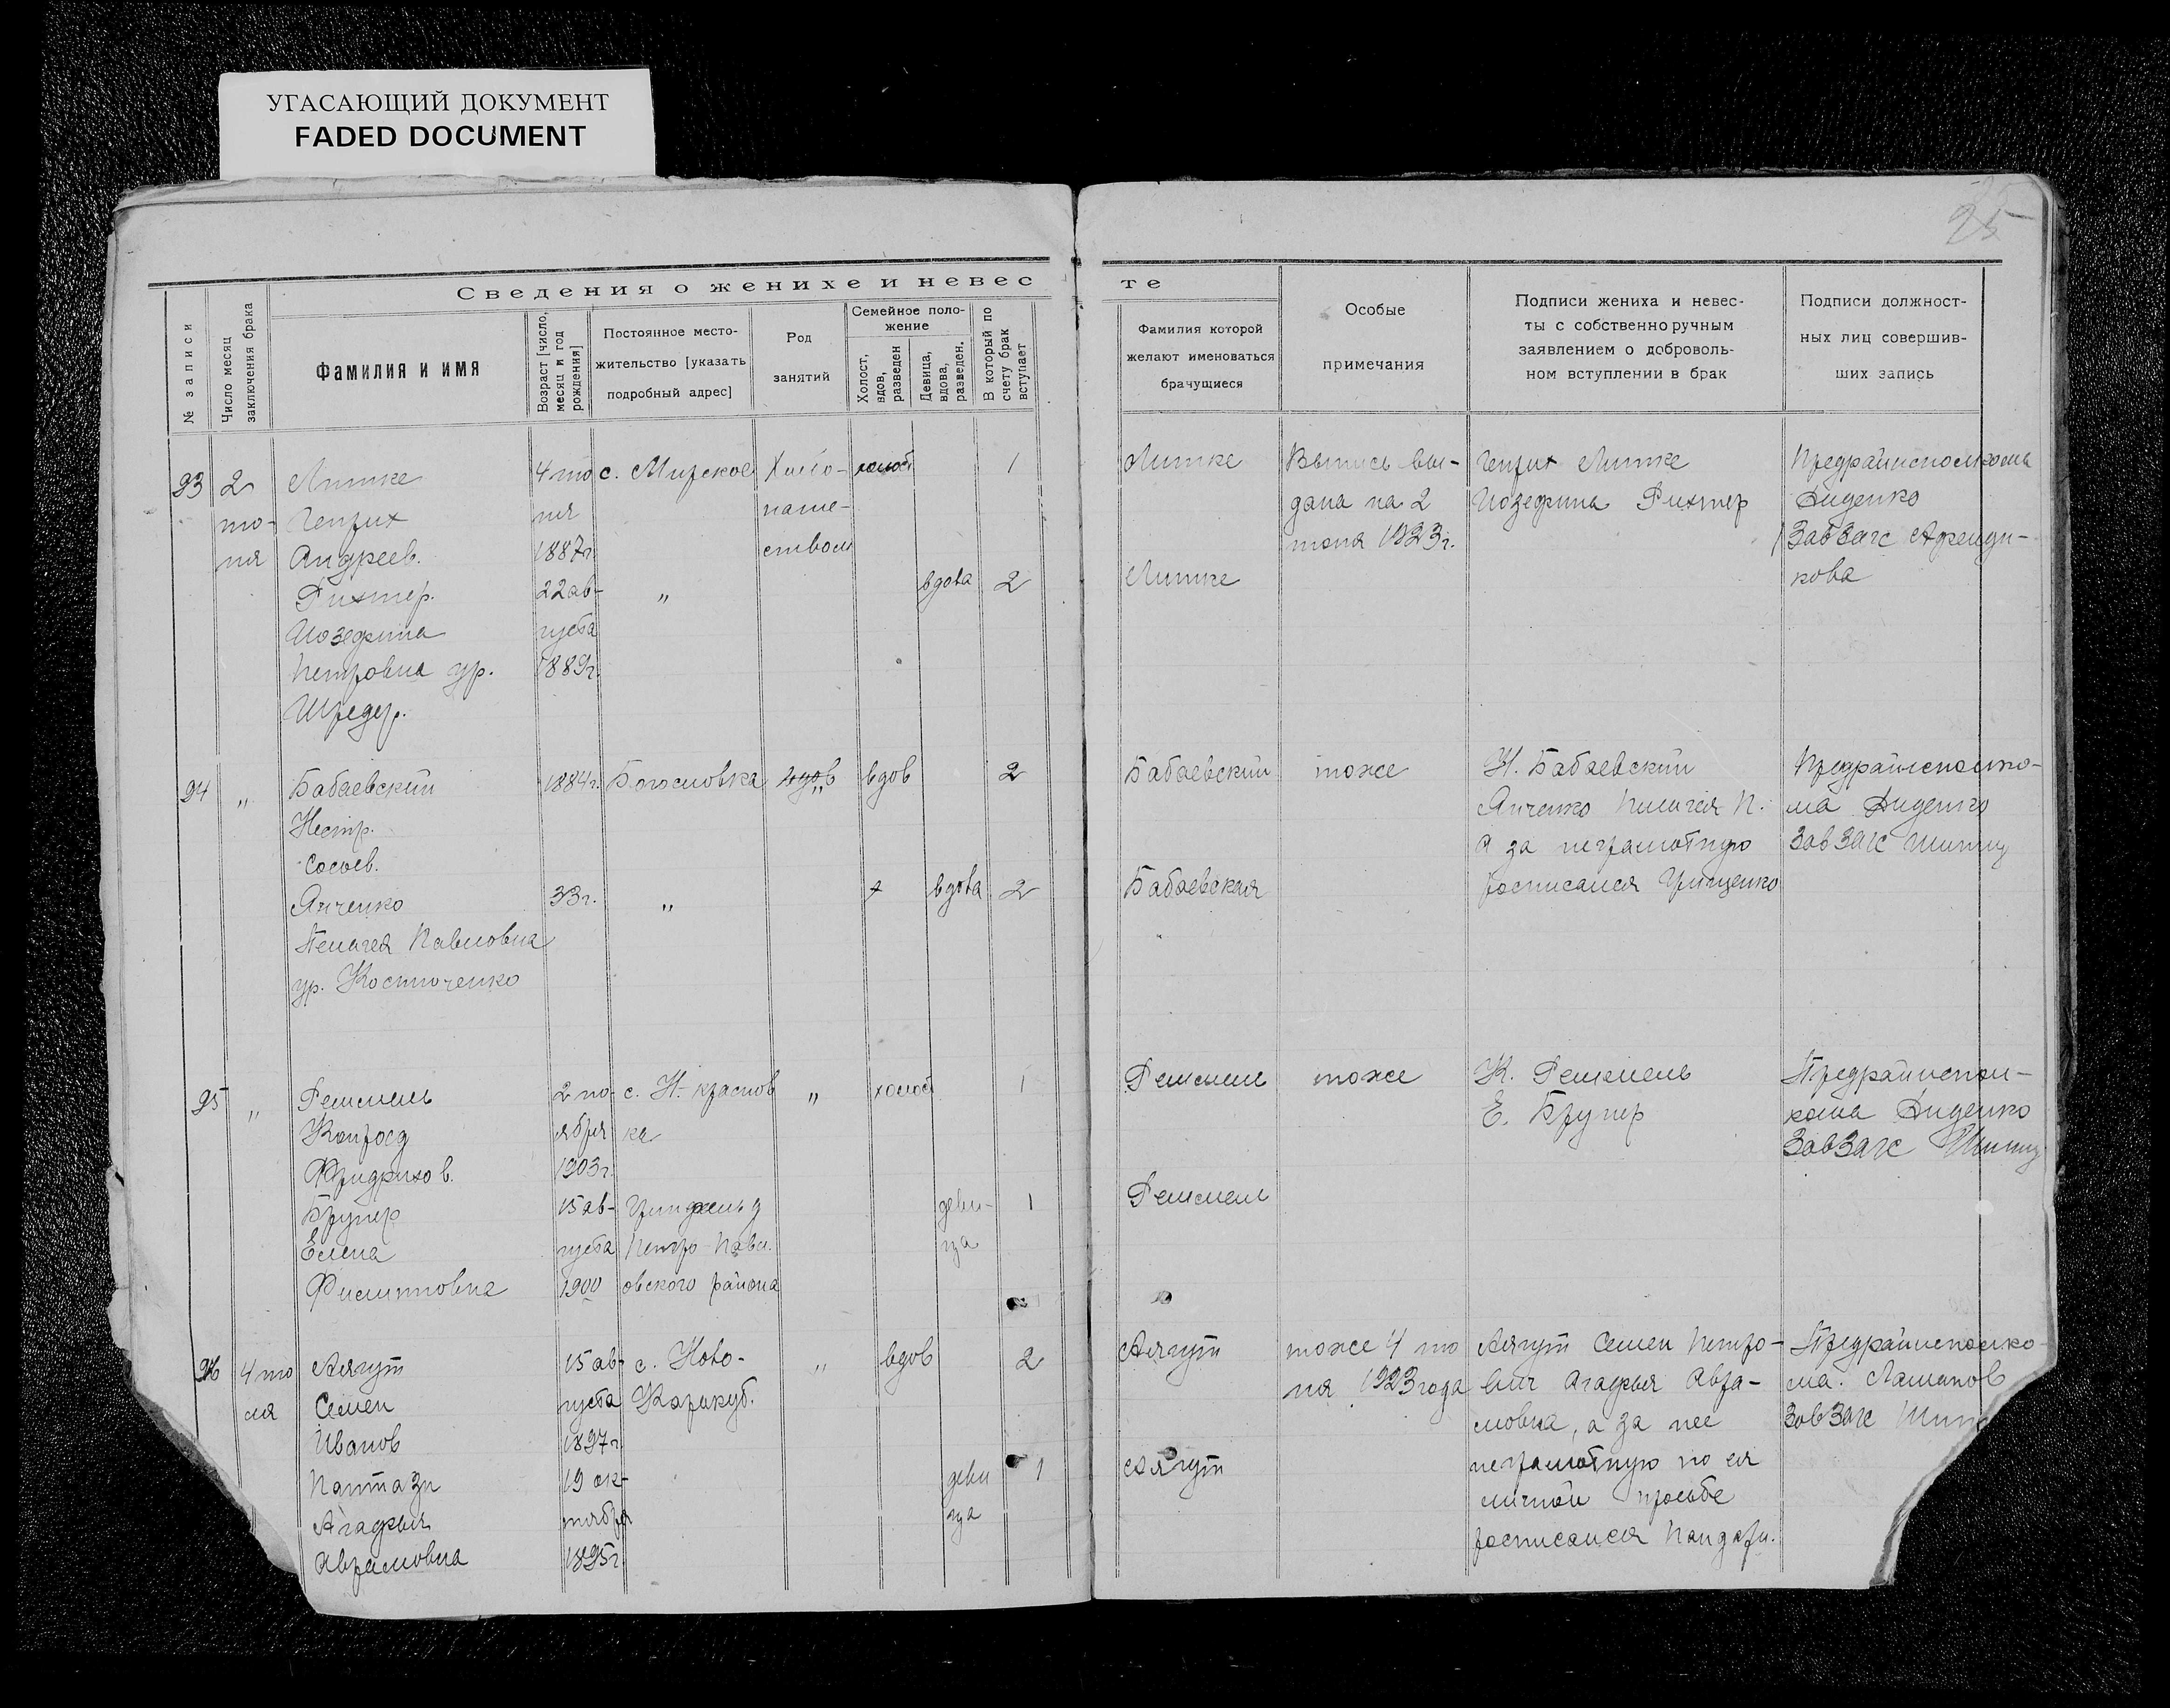 УГАСАЮЩИЙ ДОКУМЕНТ
FADED DOCUMENT
25
Сведения о женихе и невес
те
№ записи
Число месяц
заключения брака
Фамилия и имя
Возраст [число,
месяц и год
рождения]
Постоянное место-
жительство [указать
подробный адрес]
Род
занятий
Семейное поло-
жение
Холост,
вдов,
разведен
Девица,
вдова,
разведен.
В который по
счету брак
вступает
Фамилия которой
желают именоваться
брачущиеся
Особые
примечания
Подписи жениха и невес-
ты с собственноручным
заявлением о доброволь-
ном вступлении в брак
Подписи должност-
ных лиц совершив-
ших запись
93
2
ию-
ня
Литке
Генрих
Андреев.
4 ию
ня
1887г.
с. Мирское
Хлебо-
паше-
ством
холост
1
Литке
Выпись вы-
дана на 2
июня 1923г.
Генрих Литке
Иозефина Рихтер
Предрайисполкома
Диденко
ЗавЗагс
кова
Рихтер.
Иозефина
Петровна ур.
Шредер.
22 ав-
густа
1889г.
"
вдова
2
Литке
94
"
Бабаевский
Нестр.
1884г.
Богословка
вдов
"
вдов
2
Бабаевский
тоже
Н. Бабаевский
Янченко Пелагея П.
а за неграмотную
росписался Грищенко
Предрайисполко-
ма Диденко
ЗавЗагс
Янченко
Пелагея Павловна
ур. Костюченко
33г.
"
вдова
2
Бабаевская
95
"
Решмель
Конрад
Фридрихов.
2 но-
ября
1903г.
с. Н.-Краснов
ка
"
холост
1
тоже
К.
Е. Брунер
Предрайиспол-
кома Диденко
ЗавЗагс
Брунер
Елена
Филипповна
15 ав-
густа
1900
Грин
Петро-Павл.
овского района
деви-
ца
1
96
4 ию
ля
Аягут
Семен
Иванов
15 ав-
густа
1897г.
с. Ново-
Каракуб.
"
вдов
2
Аягут
тоже 4 ию
ля 1923 года
Аягут Семен Петро-
вич Агафья Авра-
мовна, а за нее
неграмотную по ея
личной просьбе
росписался
Предрайисполко-
ма.
ЗавЗагс
Пантази
Агафья
Аврамовна
19 ок-
тября
1895г.
деви
ца
1
Аягут